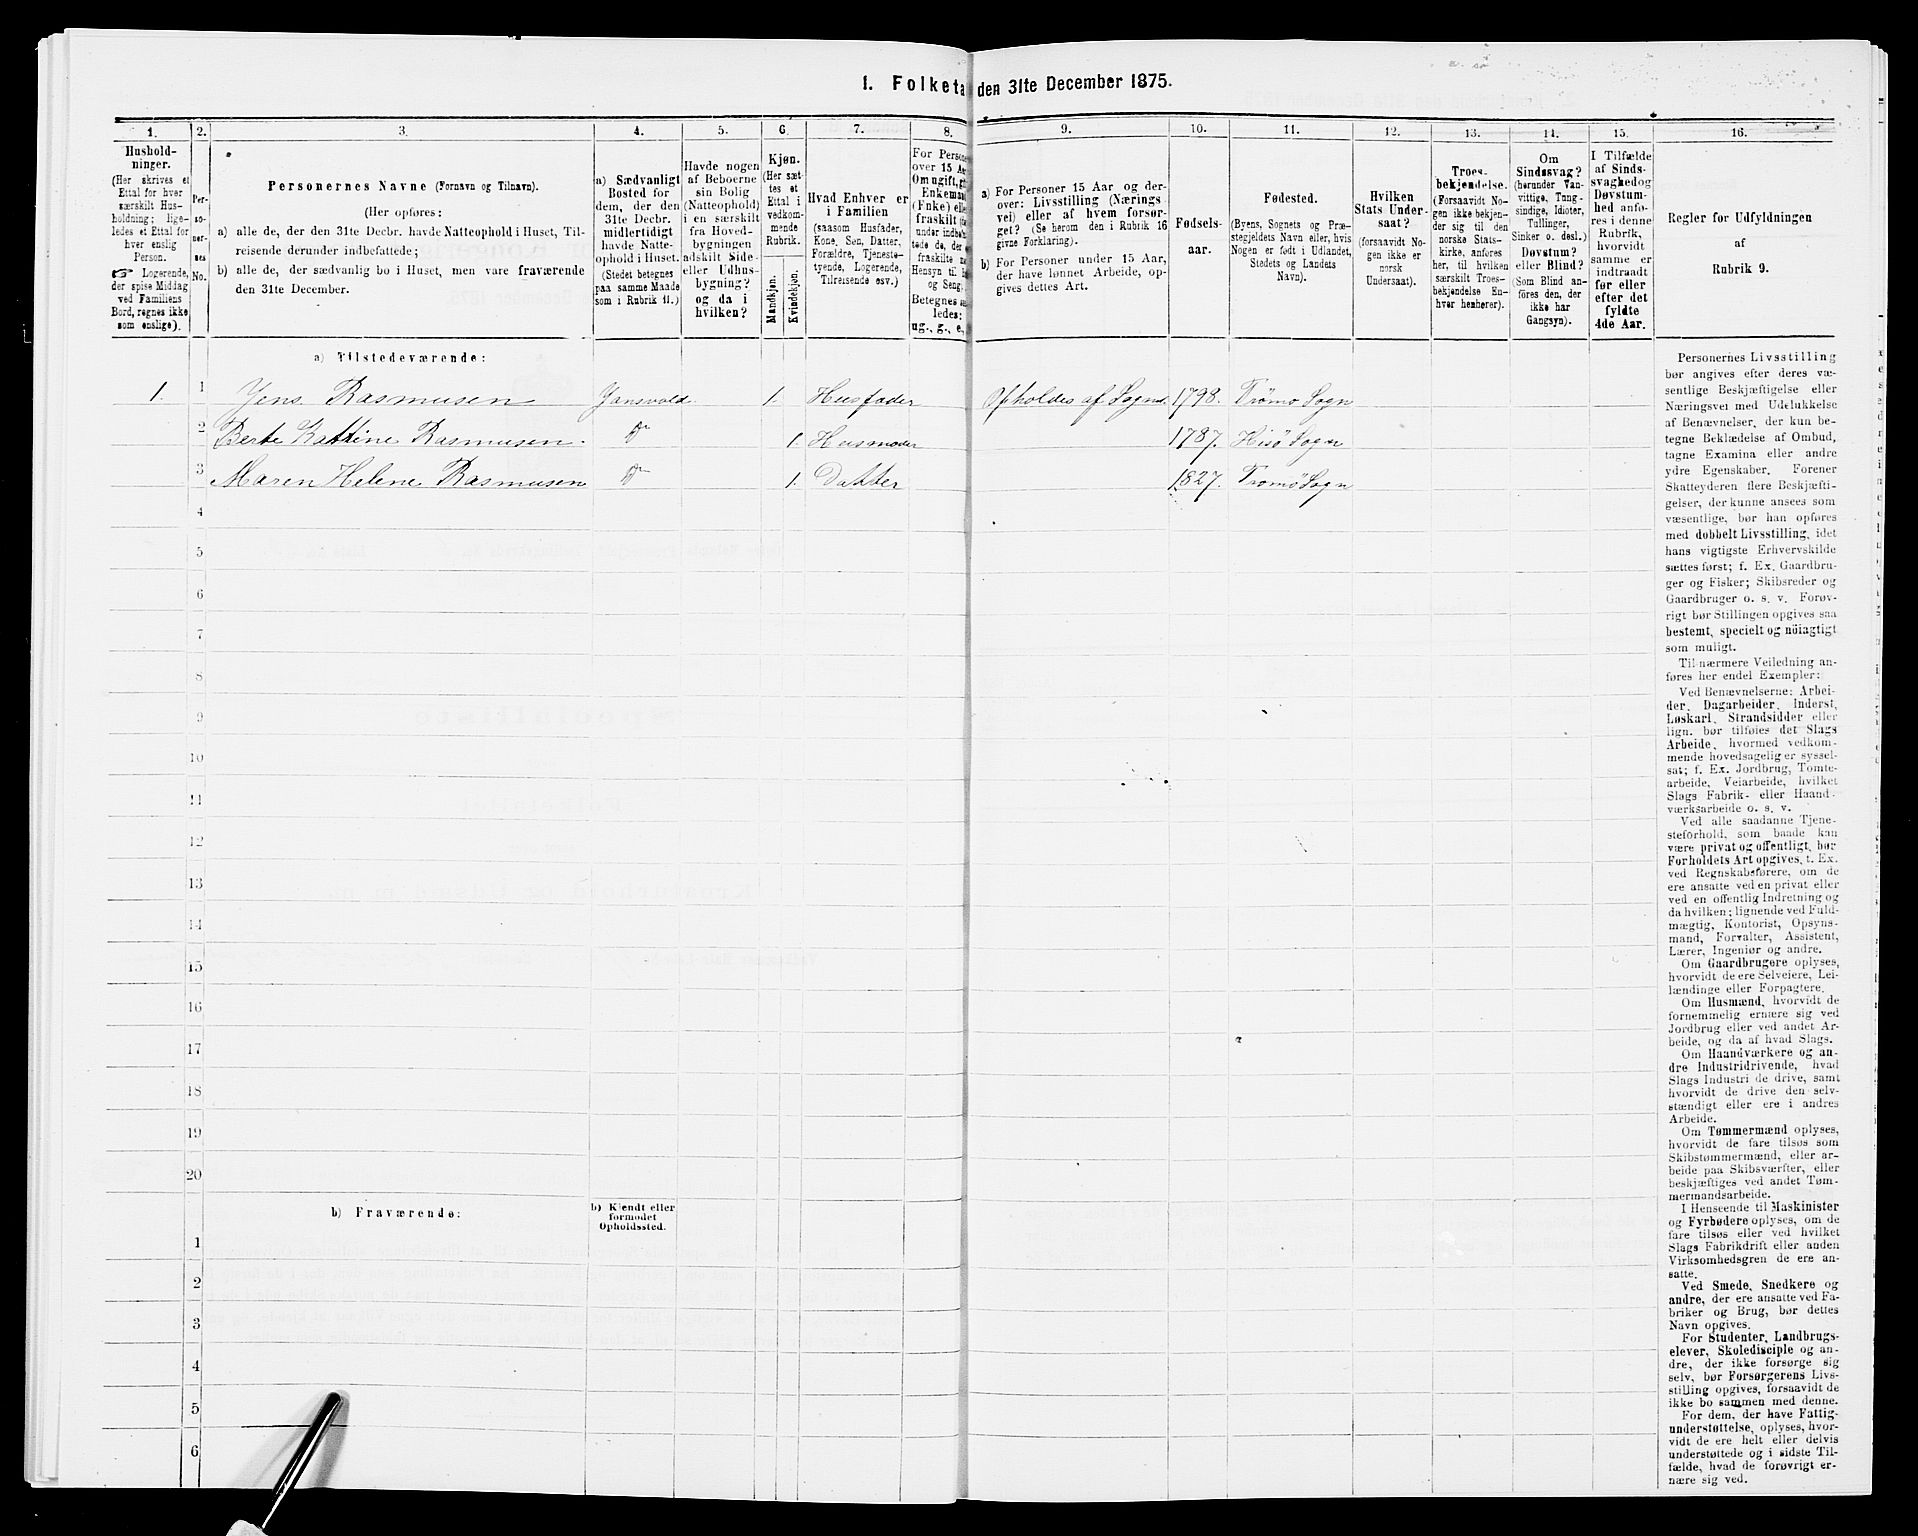 1. Folketa den 31te December 1875.
1. 2. 3. 4. 5. 6. 7. 8. 9. 10. 11. 12. 13. 14. 15. 16.
Hushold-
ninger.
(Her skrives et
Ettal for hver
særskilt Hus-
holdning; lige-
ledes et Ettal for
hver enslig
Person.
☞ Logerende,
der spise Middag
ved Familiens
Bord, regnes ikke
som enslige).
Per-
so-
ner-
nes
No.
Personernes Navne (Fornavn og Tilnavn).
(Her opføres:
a) alle de, der den 31te Decbr. havde Natteophold i Huset, Til-
reisende derunder indbefattede;
b) alle de, der sædvanlig bo i Huset, men vare fraværende
den 31te December.
a) Sædvanligt
Bosted for
dem, der den
31te Decbr.
midlertidigt
havde Natte-
ophold i Huset.
(Stedet betegnes
paa samme Maade
som i Rubrik 11.)
Havde nogen
af Beboerne
sin Bolig
(Natteophold)
i en særskilt
fra Hoved-
bygningen
adskilt Side-
eller Udhus-
bygning?
og da i
hvilken?
Kjøn.
(Her sæt-
tes et
Ettal i
vedkom-
mende
Rubrik.
Mandkjøn.
Kvindekjøn.
Hvad Enhver er
i Familien
(saasom Husfader,
Kone, Søn, Datter,
Forældre, Tjeneste-
tyende, Logerende,
Tilreisende osv.)
For Persone
over 15 Aa
Om ugift, gi
Enkeman
(Enke) elle
fraskilt
under indbe
tede de, der
fraskilte
Hensyn til
og Seng.
Betegnes
ledes:
ug., g., e,
a) For Personer 15 Aar og der-
over: Livsstilling (Nærings
vei) eller af hvem forsør-
get? (Se herom den i Rubrik 16
givne Forklaring.)
b) For Personer under 15 Aar,
der have lønnet Arbeide, op-
gives dettes Art.
Fødsels-
aar.
Fødested.
(Byens, Sognets og Præ-
stegjeldets Navn eller, hvis
Nogen er født i Udlandet,
Stedets og Landets
Navn).
Hvilken
Stats Under-
saat?
(forsaavidt No-
gen ikke er
norsk
Undersaat).
Troes-
bekjendelse.
(Forsaavidt No-
gen ikke bekjen-
der sig til den
norske Stats-
kirke, anføres
her, til hvilken
særskilt Troes-
bekjendelse En-
hver henhører).
Om
Sindssvag?
(herunder Van-
vittige, Tung-
sindige, Idioter,
Tullinger,
Sinker o. desl.)
Døvstum?
eller Blind?
(Som Blind an-
føres den, der
ikke har
Gangsyn).
I Tilfælde
af Sinds-
svaghed og
Døvstum-
hed anfø-
res i denne
Rubrik,
hvorvidt
samme er
indtraadt
før eller
efter det
fyldte
4de Aar.
Regler for Udfyldningen
af
Rubrik 9.
a) Tilstedeværende:
1. 1 Jens Rasmusen Jansvold 1. Husfader Opholdes af Sogn. 1798. Trømø Sogn
2 Berte Kattine Rasmusen D° 1. Husmoder 1787. Hisø Sogn
3 Maren Helene Rasmusen D° 1. Datter 1827. Tromø Sogn
4
5
6
7
8
9
10
11
12
13
14
15
16
17
18
19
20
b) Fraværende:
b) Kjendt eller
formodet
Opholdssted.
1
2
3
4
5
6
Personernes Livsstilling
bør angives efter deres væ-
sentlige Beskjæftigelse eller
Næringsvei med Udelukkelse
af Benævnelser, der kun be-
tegne Beklædelse af Ombud,
tagne Examina eller andre
ydre Egenskaber. Forener
Skatteyderen flere Beskjæfti-
gelser, der kunne ansees som
væsentlige, bør han opføres
med dobbelt Livsstilling, idet
hans vigtigste Erhvervskilde
sættes først; f. Ex. Gaardbru-
ger og Fisker; Skibsreder og
Gaardbruger o. s. v. Forøv-
rigt bør Stillingen opgives saa
bestemt, specielt og nöiagtigt
som muligt.
Til nærmere Veiledning an-
føres her endel Exempler:
Ved Benævnelserne: Arbei-
der, Dagarbeider, Inderst,
Løskarl, Strandsidder eller
lign. bør tilføies det Slags
Arbeide, hvormed vedkom-
mende hovedsagelig er syssel-
sat; f. Ex. Jordbrug, Tomte-
arbeide, Veiarbeide, hvilket
Slags Fabrik- eller Haand-
værksarbeide o. s. v.
Ved alle saadanne Tjene-
steforhold, som baade kan
være privat og offentligt, bør
Forholdets Art opgives, t. Ex.
ved Regnskabsførere, om de
ere ansatte ved en privat eller
ved en offentlig Indretning og
da hvilken; lignende ved Fuld-
mægtig, Kontorist, Opsyns-
mand, Forvalter, Assistent,
Lærer, Ingeniør og andre.
Om Gaardbrugere oplyses,
hvorvidt de ere Selveiere, Lei-
lændinge eller Forpagtere.
Om Husmænd, hvorvidt de
fornemmelig ernære sig ved
Jordbrug eller ved andet Ar-
beide, og da af hvad Slags.
Om Haandværkere og an-
dre Industridrivende, hvad
Slags Industri de drive, samt
hvorvidt de drive den selv-
stændigt eller ere i andres
Arbeide.
Om Tømmermænd oplyses,
hvorvidt de fare tilsøs som
Skibstømmermænd, eller ar-
beide paa Skibsværfter, eller
beskjæftiges ved andet Tøm-
mermandsarbeide.
I Henseende til Maskinister
og Fyrbødere oplyses, om de
fare tilsøs eller ved hvilket
Slags Fabrikdrift eller anden
Virksomhedsgren de ere an-
satte.
Ved Smede, Snedkere og
andre, der ere ansatte ved Fa-
briker og Brug, bør dettes
Navn opgives.
For Studenter, Landbrugs-
elever, Skoledisciple og an-
dre, der ikke forsørge sig
selv, bør Forsørgerens Livs-
stilling opgives, forsaavidt de
ikke bo sammen med denne.
For dem, der have Fattig-
understøttelse, oplyses, hvor-
vidt de ere helt eller delvis
understøttede og i sidste Til-
fælde, hvad de forøvrigt er-
nære sig ved.